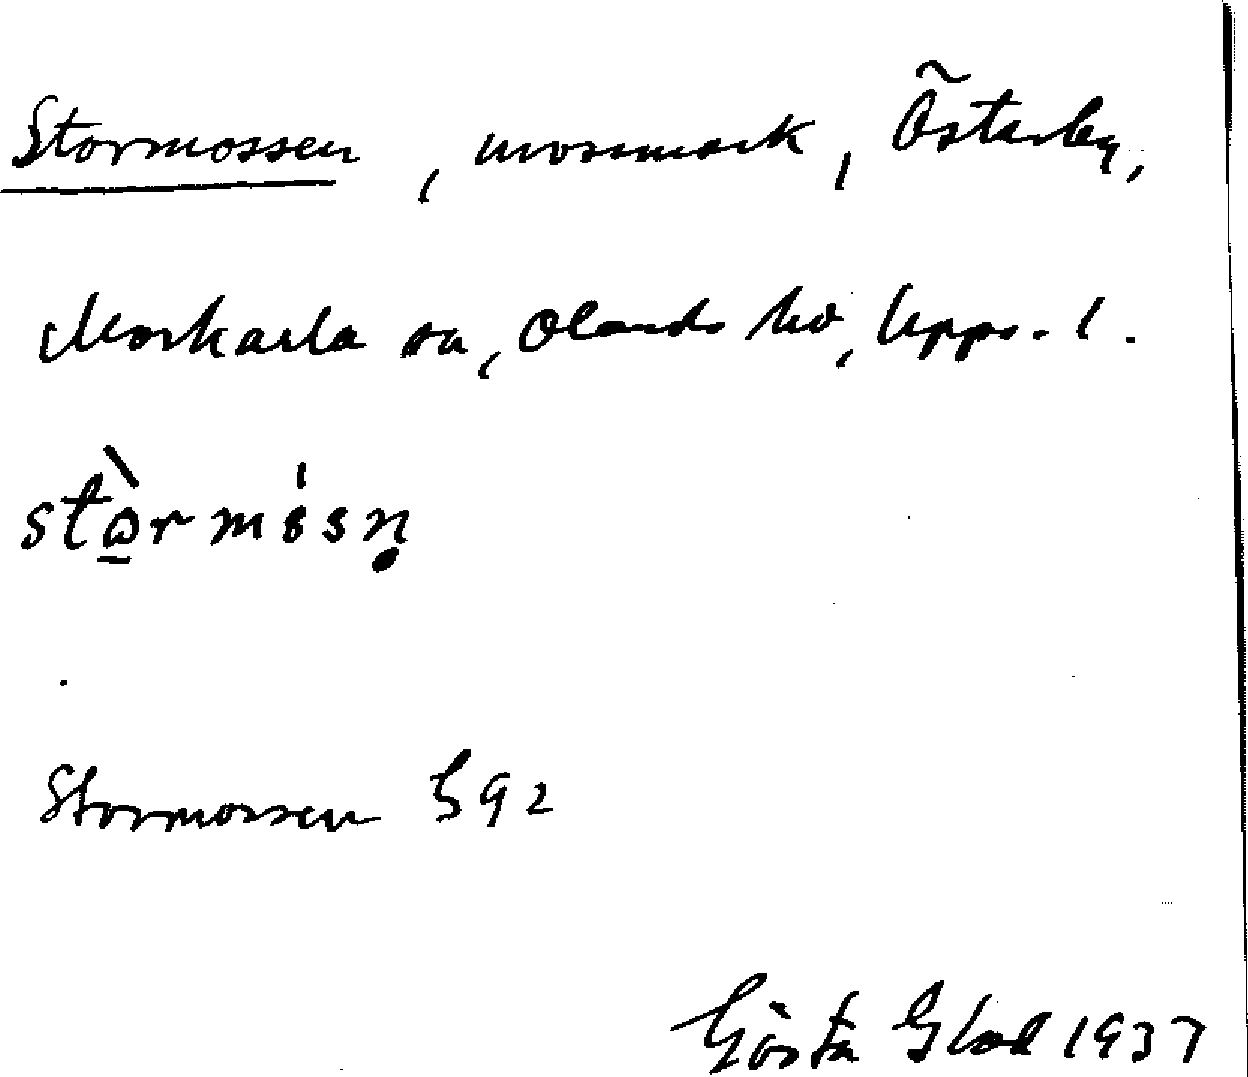 Stormossen, mossmark, Österby,
Morkarla sn, Olands hd, Upps. l.
stɷ̠̀rmósn̥
Stormossen G92
Gösta Glad 1937